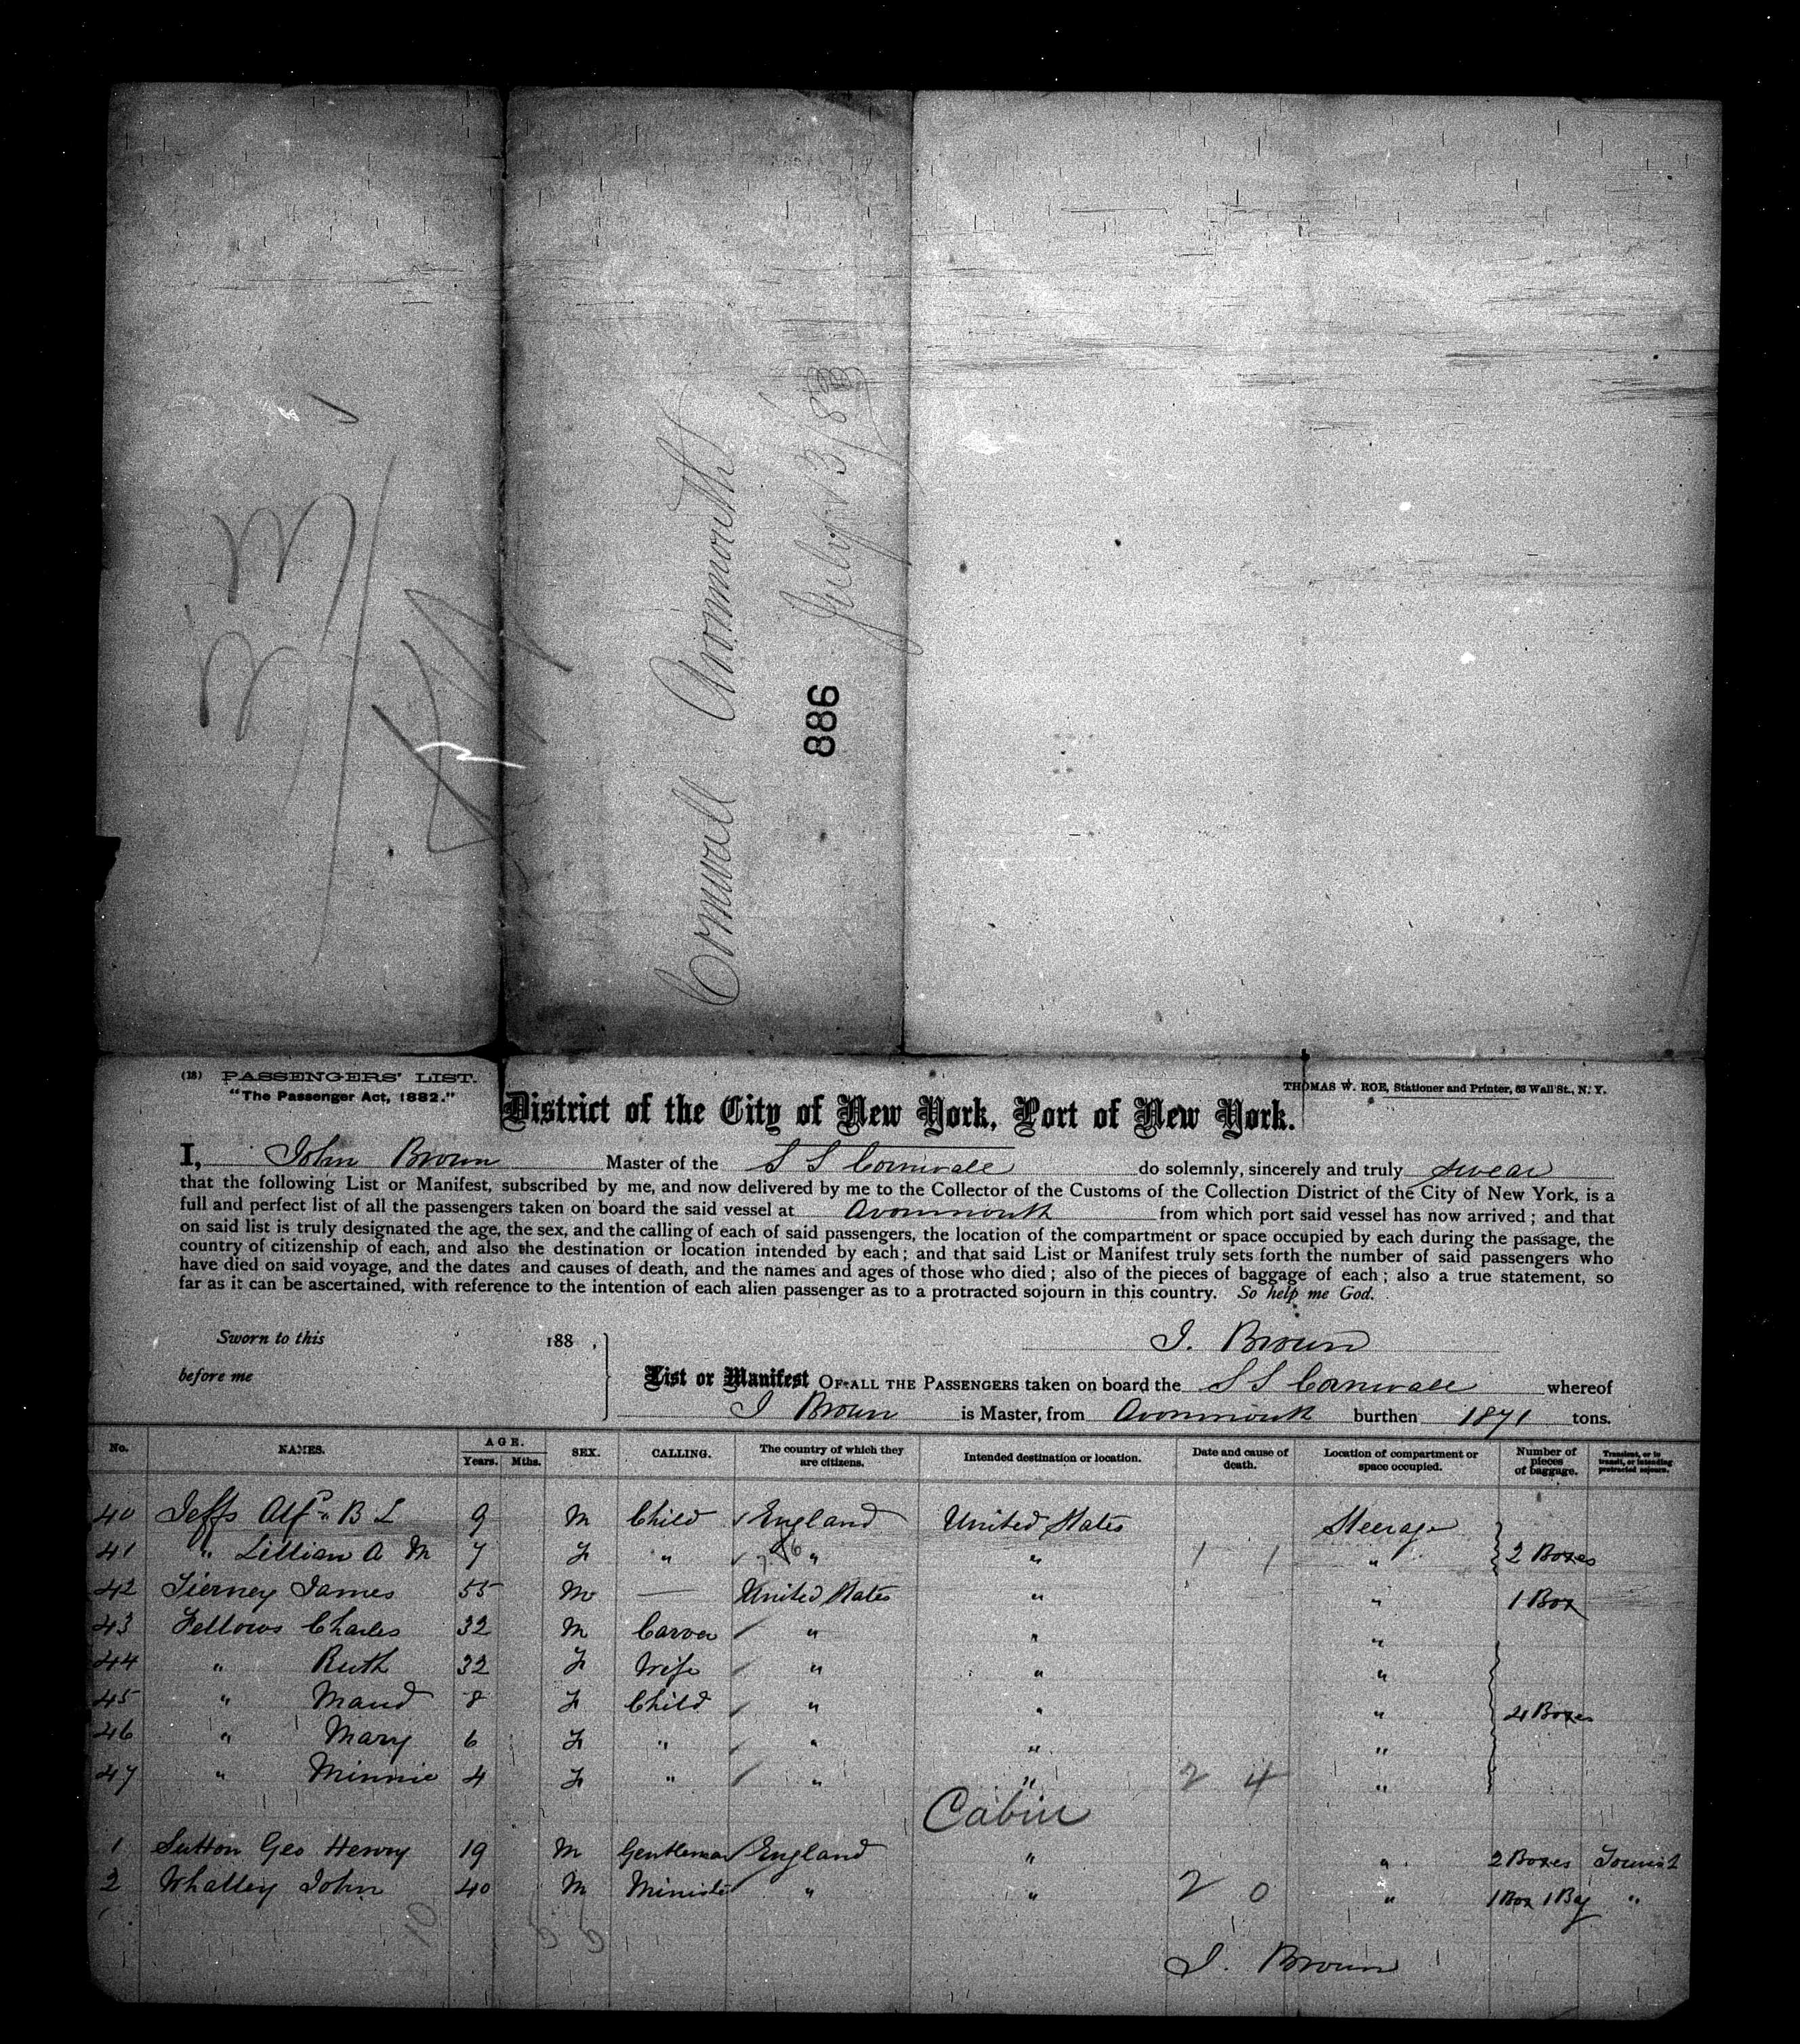 Cornwall Avonmouth
886
(18) PASSENGERS' LIST.
"The Passenger Act, 1882."
THOMAS W. ROE, Stationer and Printer, 53 Wall St., N. Y.
District of the City of New York, Port of New York.
I, John Brown Master of the S S Cornwall do solemnly, sincerely and truly swear
that the following List or Manifest, subscribed by me, and now delivered by me to the Collector of the Customs of the Collection District of the City of New York, is a
full and perfect list of all the passengers taken on board the said vessel at Avonmouth from which port said vessel has now arrived; and that
on said list is truly designated the age, the sex, and the calling of each of said passengers, the location of the compartment or space occupied by each during the passage, the
country of citizenship of each, and also the destination or location intended by each; and that said List or Manifest truly sets forth the number of said passengers who
have died on said voyage, and the dates and causes of death, and the names and ages of those who died; also of the pieces of baggage of each; also a true statement, so
far as it can be ascertained, with reference to the intention of each alien passenger as to a protracted sojourn in this country. So help me God.
Sworn to this 188 ,
J. Brown
before me
List or Manifest OF ALL THE PASSENGERS taken on board the S S Cornwall whereof
J Brown is Master, from Avonmouth burthen 1871 tons.
No. NAMES. AGE. Years. Mths. SEX. CALLING. The country of which they are citizens. Intended destination or location. Date and cause of death. Location of compartment or space occupied. Number of pieces of baggage. Transient, or in transit, or intending protracted sojourn.
40 Jeffs Alfd B L 9 M Child England United States Steerage
41 " Lillian A M 7 F " " " 1 1 " 2 Boxes
42 Tierney James 55 M — United States " " 1 Box
43 Fellows Charles 32 M Carver " " "
44 " Ruth 32 F Wife " " "
45 " Maud 8 F Child " " " 4 Boxes
46 " Mary 6 F " " " "
47 " Minnie 4 F " " " 2 4 "
Cabin
1 Sutton Geo Henry 19 M Gentleman England " " 2 Boxes Tourist
2 Whalley John 40 M Minister " " 2 0 " 1 Box 1 Bg "
J. Brown